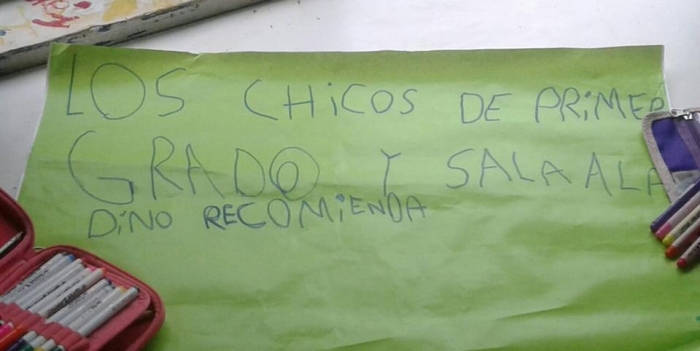 LOS CHiCOS DE PRiMER
GRADO Y SALA ALA
DiNO RECOMiENDA